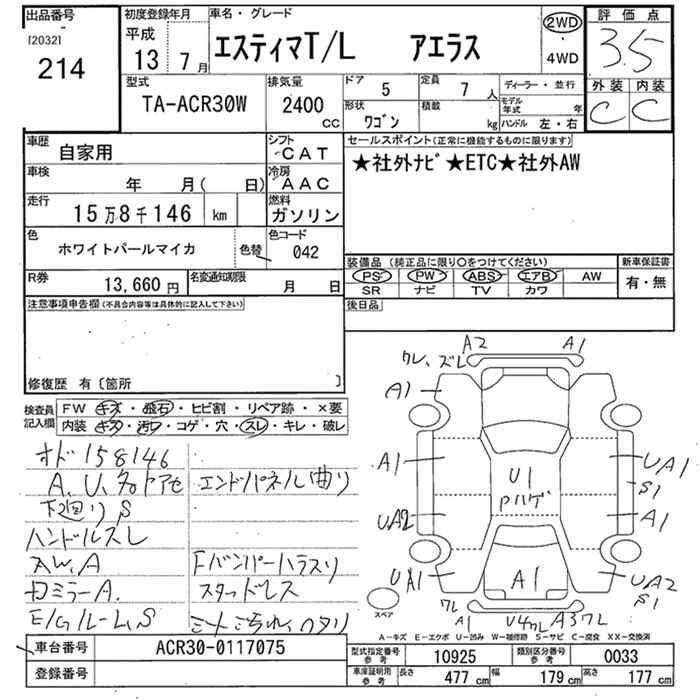 出品番号
[2032]
214
初度登録年月
平成
13 7月
車名・グレード
エスティマT/L アエラス
2WD
4WD
評価点
3.5
外装 内装
C C
型式
TA-ACR30W
排気量
2400
CC
ドア 5
形状
ワゴン
定員 7 人
積載 kg
ディーラー・並行
モデル年式 年
ハンドル 左・右
車歴
自家用
シフト
CAT
車検
年 月( 日)
冷房
AAC
走行
15万8千146 km
燃料
ガソリン
色
ホワイトパールマイカ
色替
色コード
042
R券
13,660円
名変通知期限
月 日
セールスポイント(正常に機能するものに限ります)
★社外ナビ★ETC★社外AW
装備品(純正品に限り〇をつけてください)
PS PW ABS エアB AW
SR ナビ TV カワ
新車保証書
有・無
後日品
注意事項申告欄(不具合内容等は具体的に記入して下さい)
修復歴 有〔箇所 〕
検査員記入欄
FW キズ・飛石・ヒビ割・リペア跡・×要
内装 キズ・汚レ・コゲ・穴・スレ・キレ・破レ
オド158146
A、U、多
エンドパネル曲り
下廻りS
ハンドルスレ
AW、A
Fバンパー
ロミラーA.
スタッドレス
E/Gルーム、S
ワレ、ズレ
A2 A1
A1
A1
UA2
UA1
U1
Pハゲ
UA1
S1
A1
UA2
S1
A1
スペア
ワレ
A1
U4ワレ A3ワレ
A-キズ E-エクボ U-凹み W-補修跡 S-サビ C-腐食 XX-交換済
車台番号
ACR30-0117075
登録番号
型式指定番号 参考
10925
類別区分番号 参考
0033
車庫証明用 参考
長さ 477 cm
幅 179 cm
高さ 177 cm